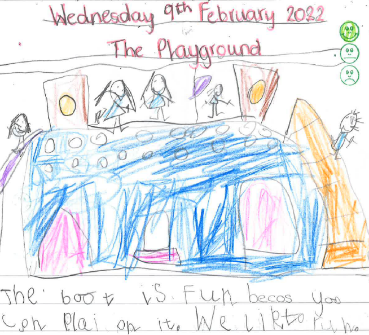 Wednesday 9th February 2022
The Playground
The boot is Fun becos yoo
can plai on it. We like to